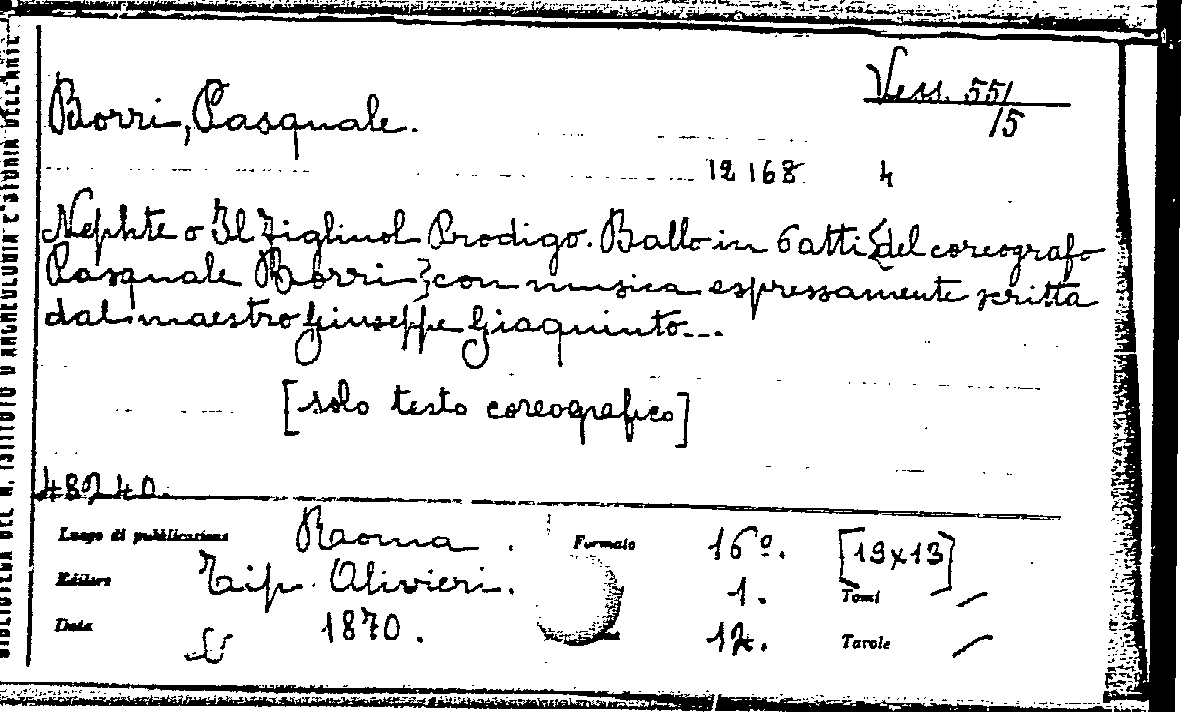 BIBLIOTECA DEL R. ISTITUTO D'ARCHEOLOGIA E STORIA DELL'ARTE
Vess. 551/15
Borri, Pasquale.
12168 4
Nephte o Il Figliuol Prodigo. Ballo in 6 atti {del coreografo
Pasquale Borri} con musica espressamente scritta
dal maestro Giuseppe Giaquinto...
[solo testo coreografico]
48240.
Luogo di pubblicazione Roma. Formato 16º. [19x13]
Editore Tip. Olivieri. 1. Tomi
Data 1870. 12. Tavole